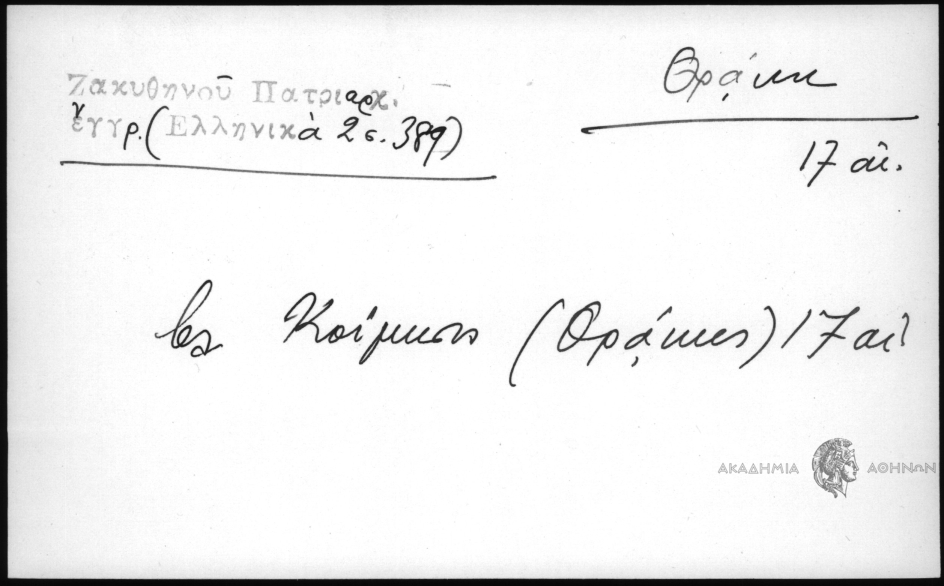 Ζακυθηνοῦ Πατριαρχ.
ἔγγρ. (Ἑλληνικὰ 2 σ. 389)
Θρᾴκη
17 αἰ.
Κοίμησις (Θρᾴκης) 17 αἰ
ΑΚΑΔΗΜΙΑ ΑΘΗΝΩΝ